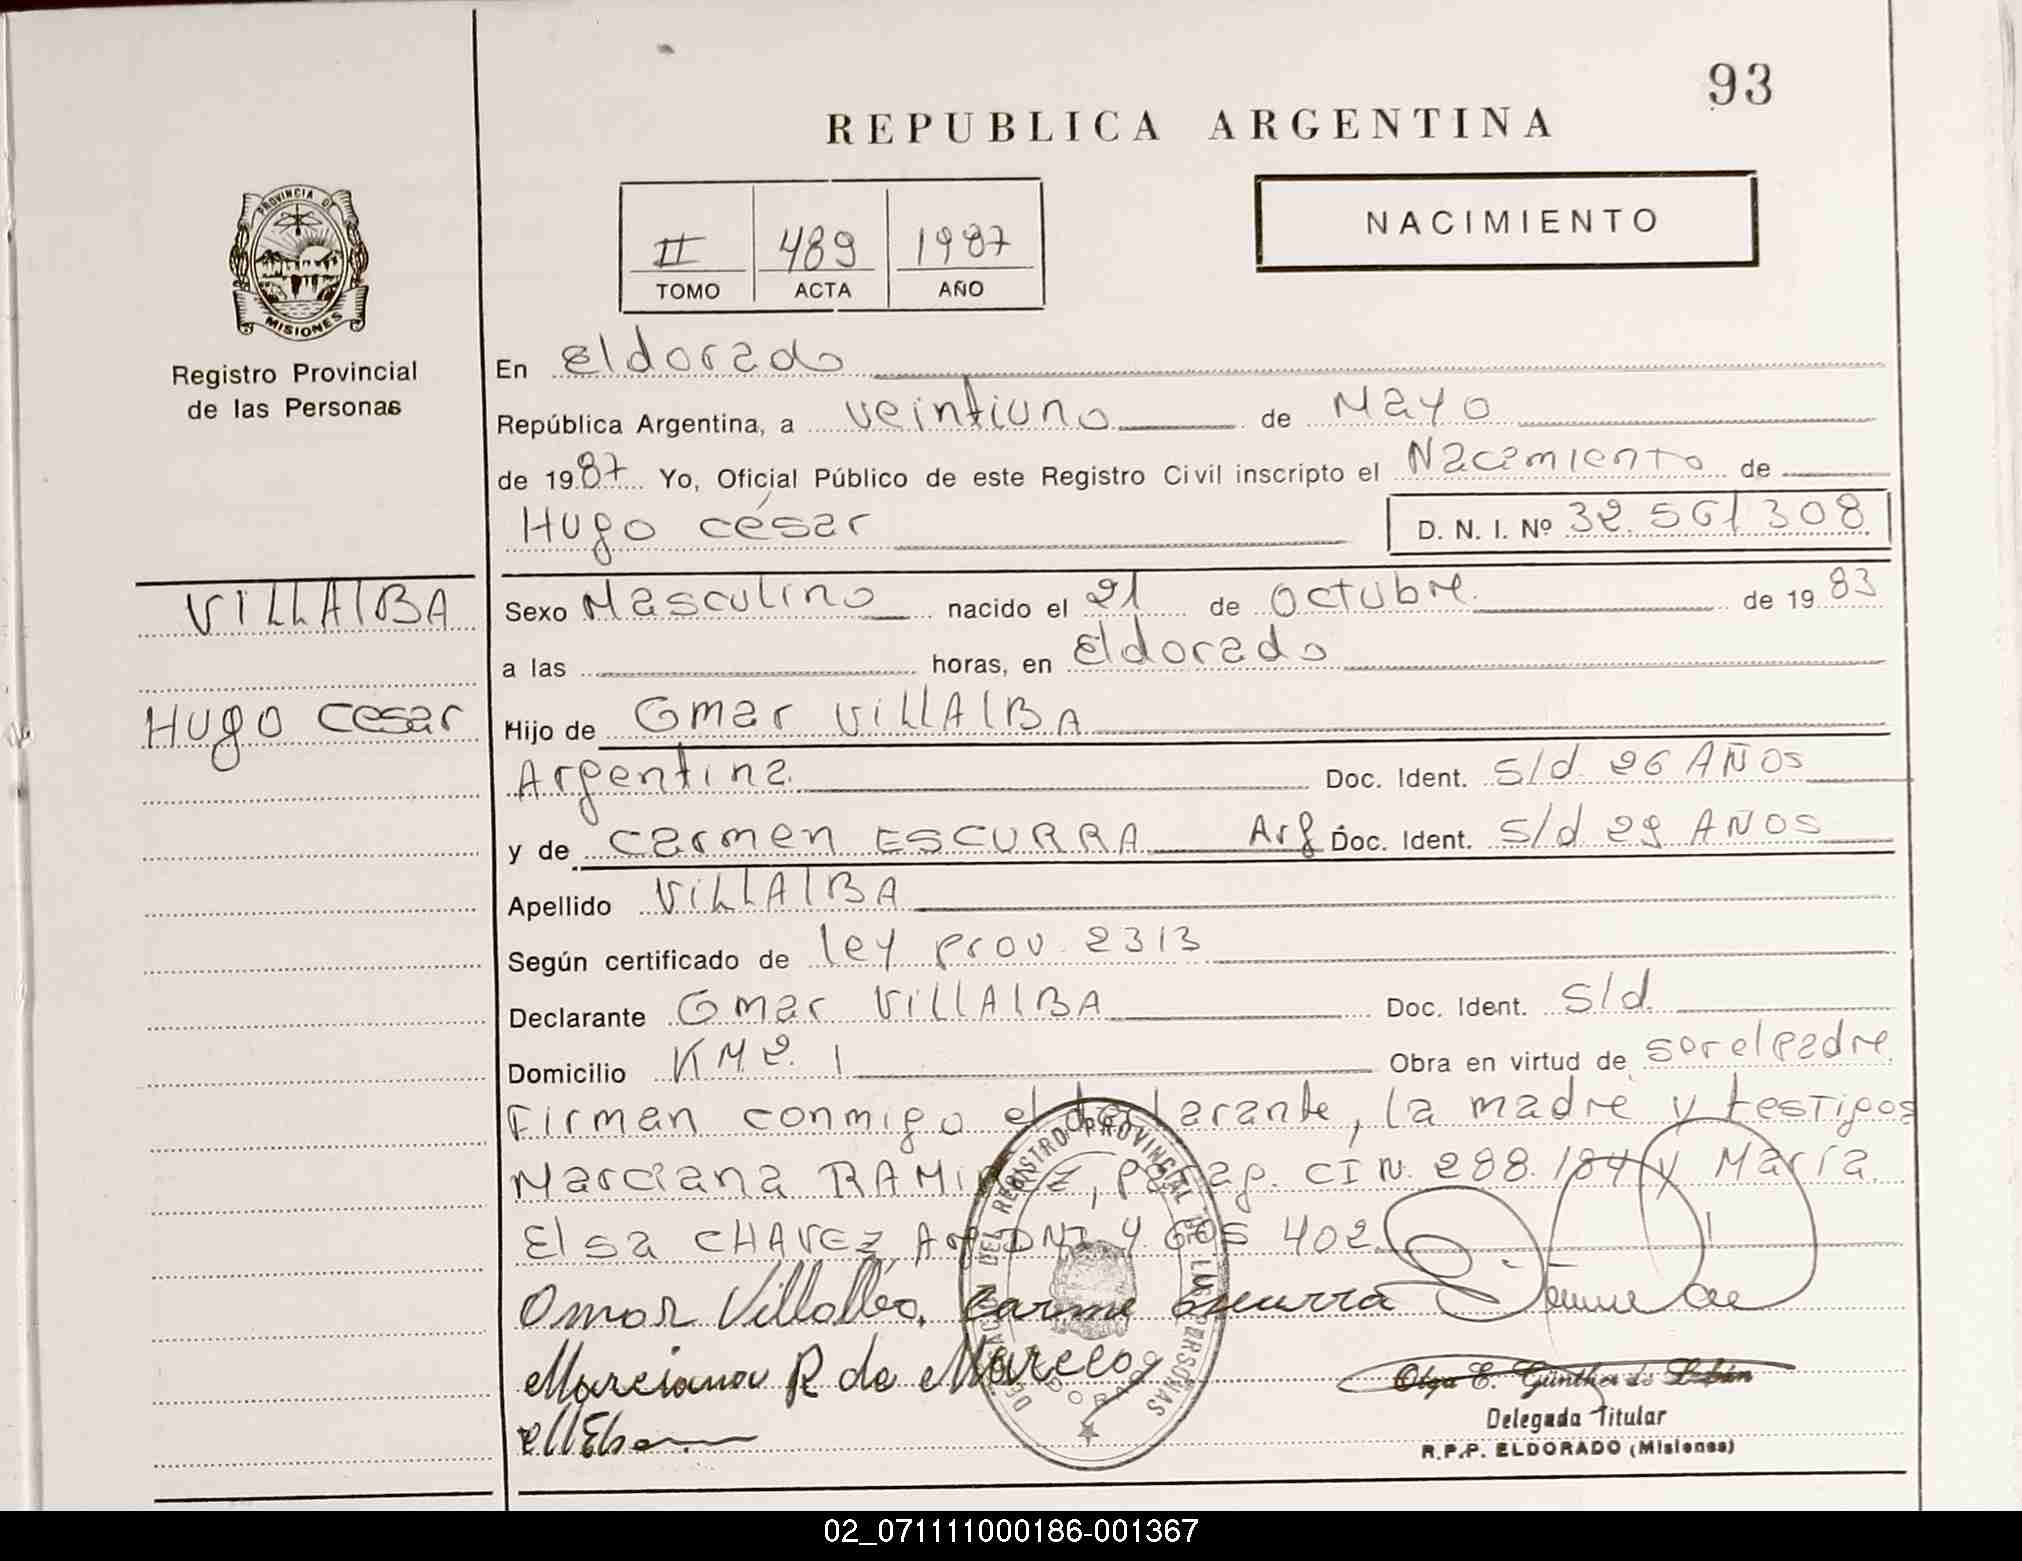 93
REPUBLICA ARGENTINA
NACIMIENTO
II 489 1987
TOMO ACTA AÑO
PROVINCIA DE
MISIONES
Registro Provincial
de las Personas
En Eldorado
República Argentina, a veintiuno de Mayo
de 1987 Yo, Oficial Público de este Registro Civil inscripto el Nacimiento de
Hugo césar D. N. I. Nº 32.561308
VILLALBA
Hugo cesar
Sexo Masculino nacido el 21 de Octubre de 1983
a las horas, en Eldorado
Hijo de Omar VILLALBA
Argentina. Doc. Ident. S/d. 26 AÑOS
y de carmen ESCURRA Arg. Doc. Ident. S/d 29 AÑOS
Apellido VILLALBA
Según certificado de ley prov. 2313
Declarante Omar VILLALBA Doc. Ident. S/d.
Domicilio KM. 2. 1 Obra en virtud de ser el padre.
Firman conmigo el declarante, la madre y testigos
Marciana RAMIREZ, Parag. CI N. 288.184 y María
Elsa CHAVEZ Arg DNI 4 605 402
Omar Villalba. Carme Escurra
Marciana R de Marecos
DELEGACION DEL REGISTRO PROVINCIAL DE LAS PERSONAS
Olga E. Günther de Lebán
Delegada Titular
R.P.P. ELDORADO (Misiones)
02_071111000186-001367